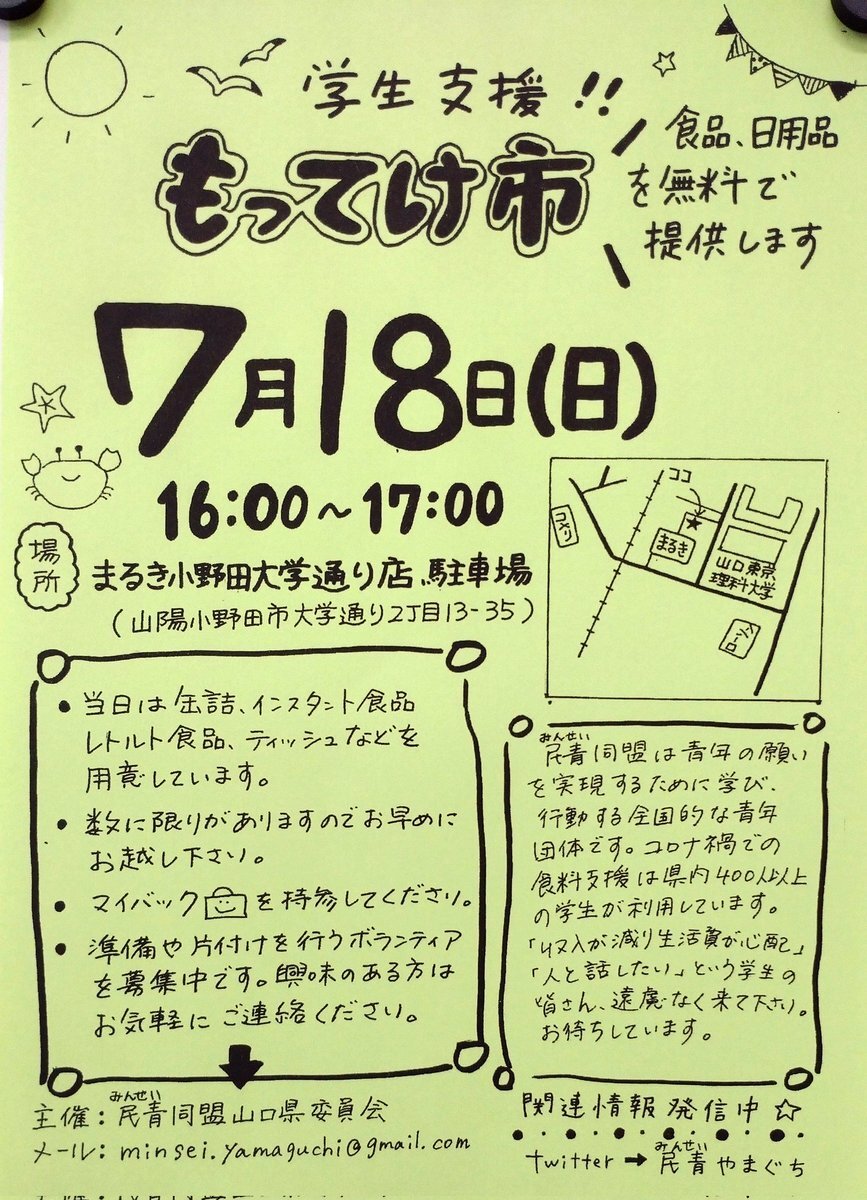 学生支援!!
もってけ市
食品、日用品
を無料で
提供します
7月18日(日)
16:00～17:00
場所
まるき小野田大学通り店、駐車場
(山陽小野田市大学通り2丁目13-35)
ココ
コメリ
まるき
山口東京
理科大学
・当日は缶詰、インスタント食品
レトルト食品、ティッシュなどを
用意しています。
・数に限りがありますのでお早めに
お越し下さい。
・マイバックを持参してください。
・準備や片付けを行うボランティア
を募集中です。興味のある方は
お気軽にご連絡ください。
みんせい
民青同盟は青年の願い
を実現するために学び、
行動する全国的な青年
団体です。コロナ禍での
食料支援は県内400人以上
の学生が利用しています。
「収入が減り生活費が心配」
「人と話したい」という学生の
皆さん、遠慮なく来て下さい。
お待ちしています。
みんせい
主催:民青同盟山口県委員会
メール:minsei.yamaguchi@gmail.com
関連情報発信中☆
みんせい
twitter→民青やまぐち